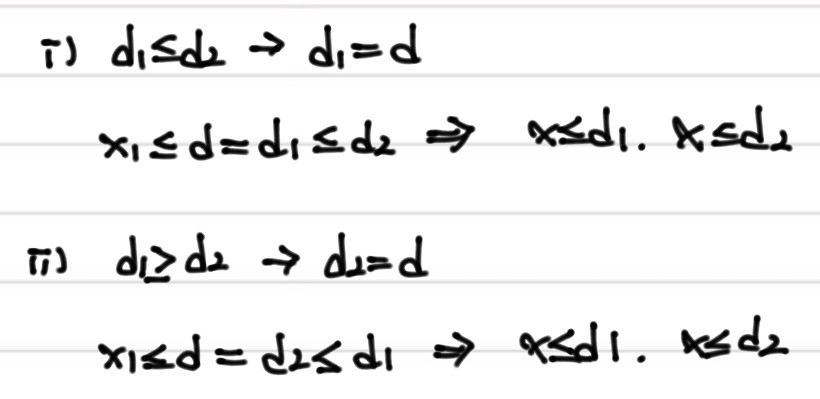 i) d₁≤d₂ → d₁=d
x₁≤d=d₁≤d₂ ⇒ x≤d₁. x≤d₂
ii) d₁≥d₂ → d₂=d
x₁≤d=d₂≤d₁ ⇒ x≤d₁. x≤d₂